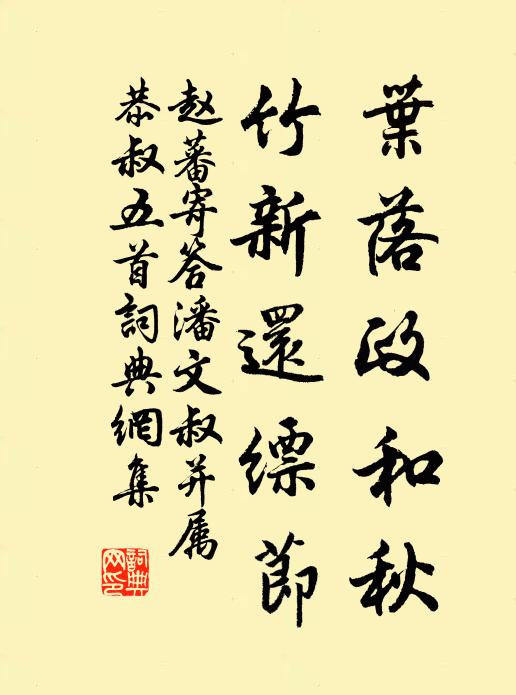 葉落政和秋
竹新還縹節
赵蕃寄答潘文叔并属
恭叔五首詞典網集
詞典網印